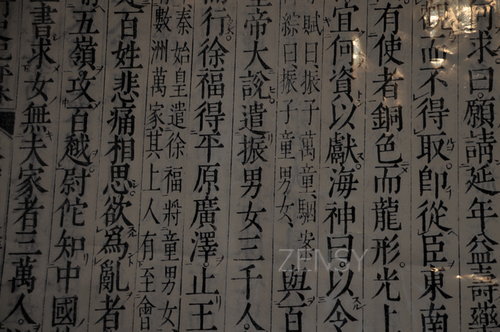 求曰。願請延年益壽藥
觀而不得取。即從臣東南
有使者銅色而龍形光上
宜何資以獻。海神曰。以令
賦曰振子萬童駰案
綜曰振子童男女
與百
帝大說遣振男女三千人
行。徐福得平原廣澤。止王
秦始皇遣徐福將童男女
數洲萬家其上人有至會
百姓悲痛相思欲爲亂者
五嶺。攻百越。尉佗知中國
書求女無夫家者三萬人。
ZENSY